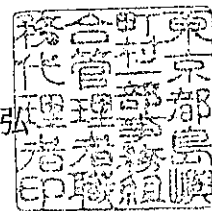 弘
東京都島嶼
町村一部事務組
合管理者職
務代理者印